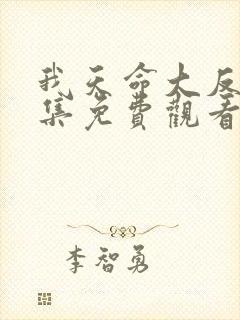 我天命大反
集免費觀看
李智勇